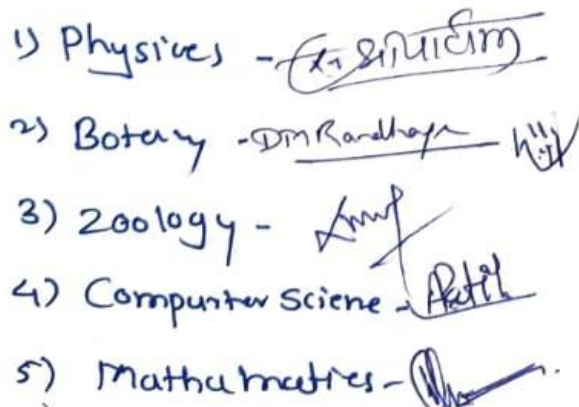 1) Physices -
2) Botany - DMRandhaya
3) Zoology -
4) Compunter Sciene - Patil
5) Mathamatics -